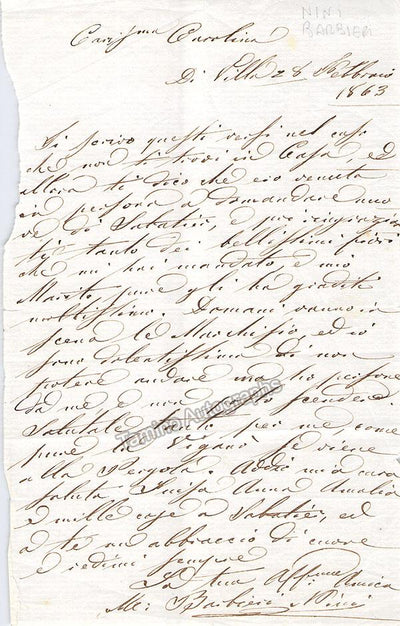 NINI
BARBIERI
Cariss.ma Carolina
Di Villa 28 Febbraio
1863
Ti scrivo questi versi nel caso
che non ti trovi in Casa, ed
allora ti dico che ero venuta
in persona a domandare nuo
ve di Sabatié, e per ringraziar
ti tanto dei bellissimi fiori
che mi hai mandato, e mio
Marito pure gli ha graditi
moltissimo. Domani vanno in
scena le Marchisio, ed io
sono dolentissima di non
potere andare ma ho persone
da me e non scendere.
Salutale per me, come
pure la Viganò se viene
alla Pergola. Addio mia cara
saluta Luisa Anna Amalia
e mille cose a Sabatié, ed
a te un abbraccio di cuore
e credimi sempre
La tua Aff.ma Amica
Barbieri Nini
Tamino Autographs